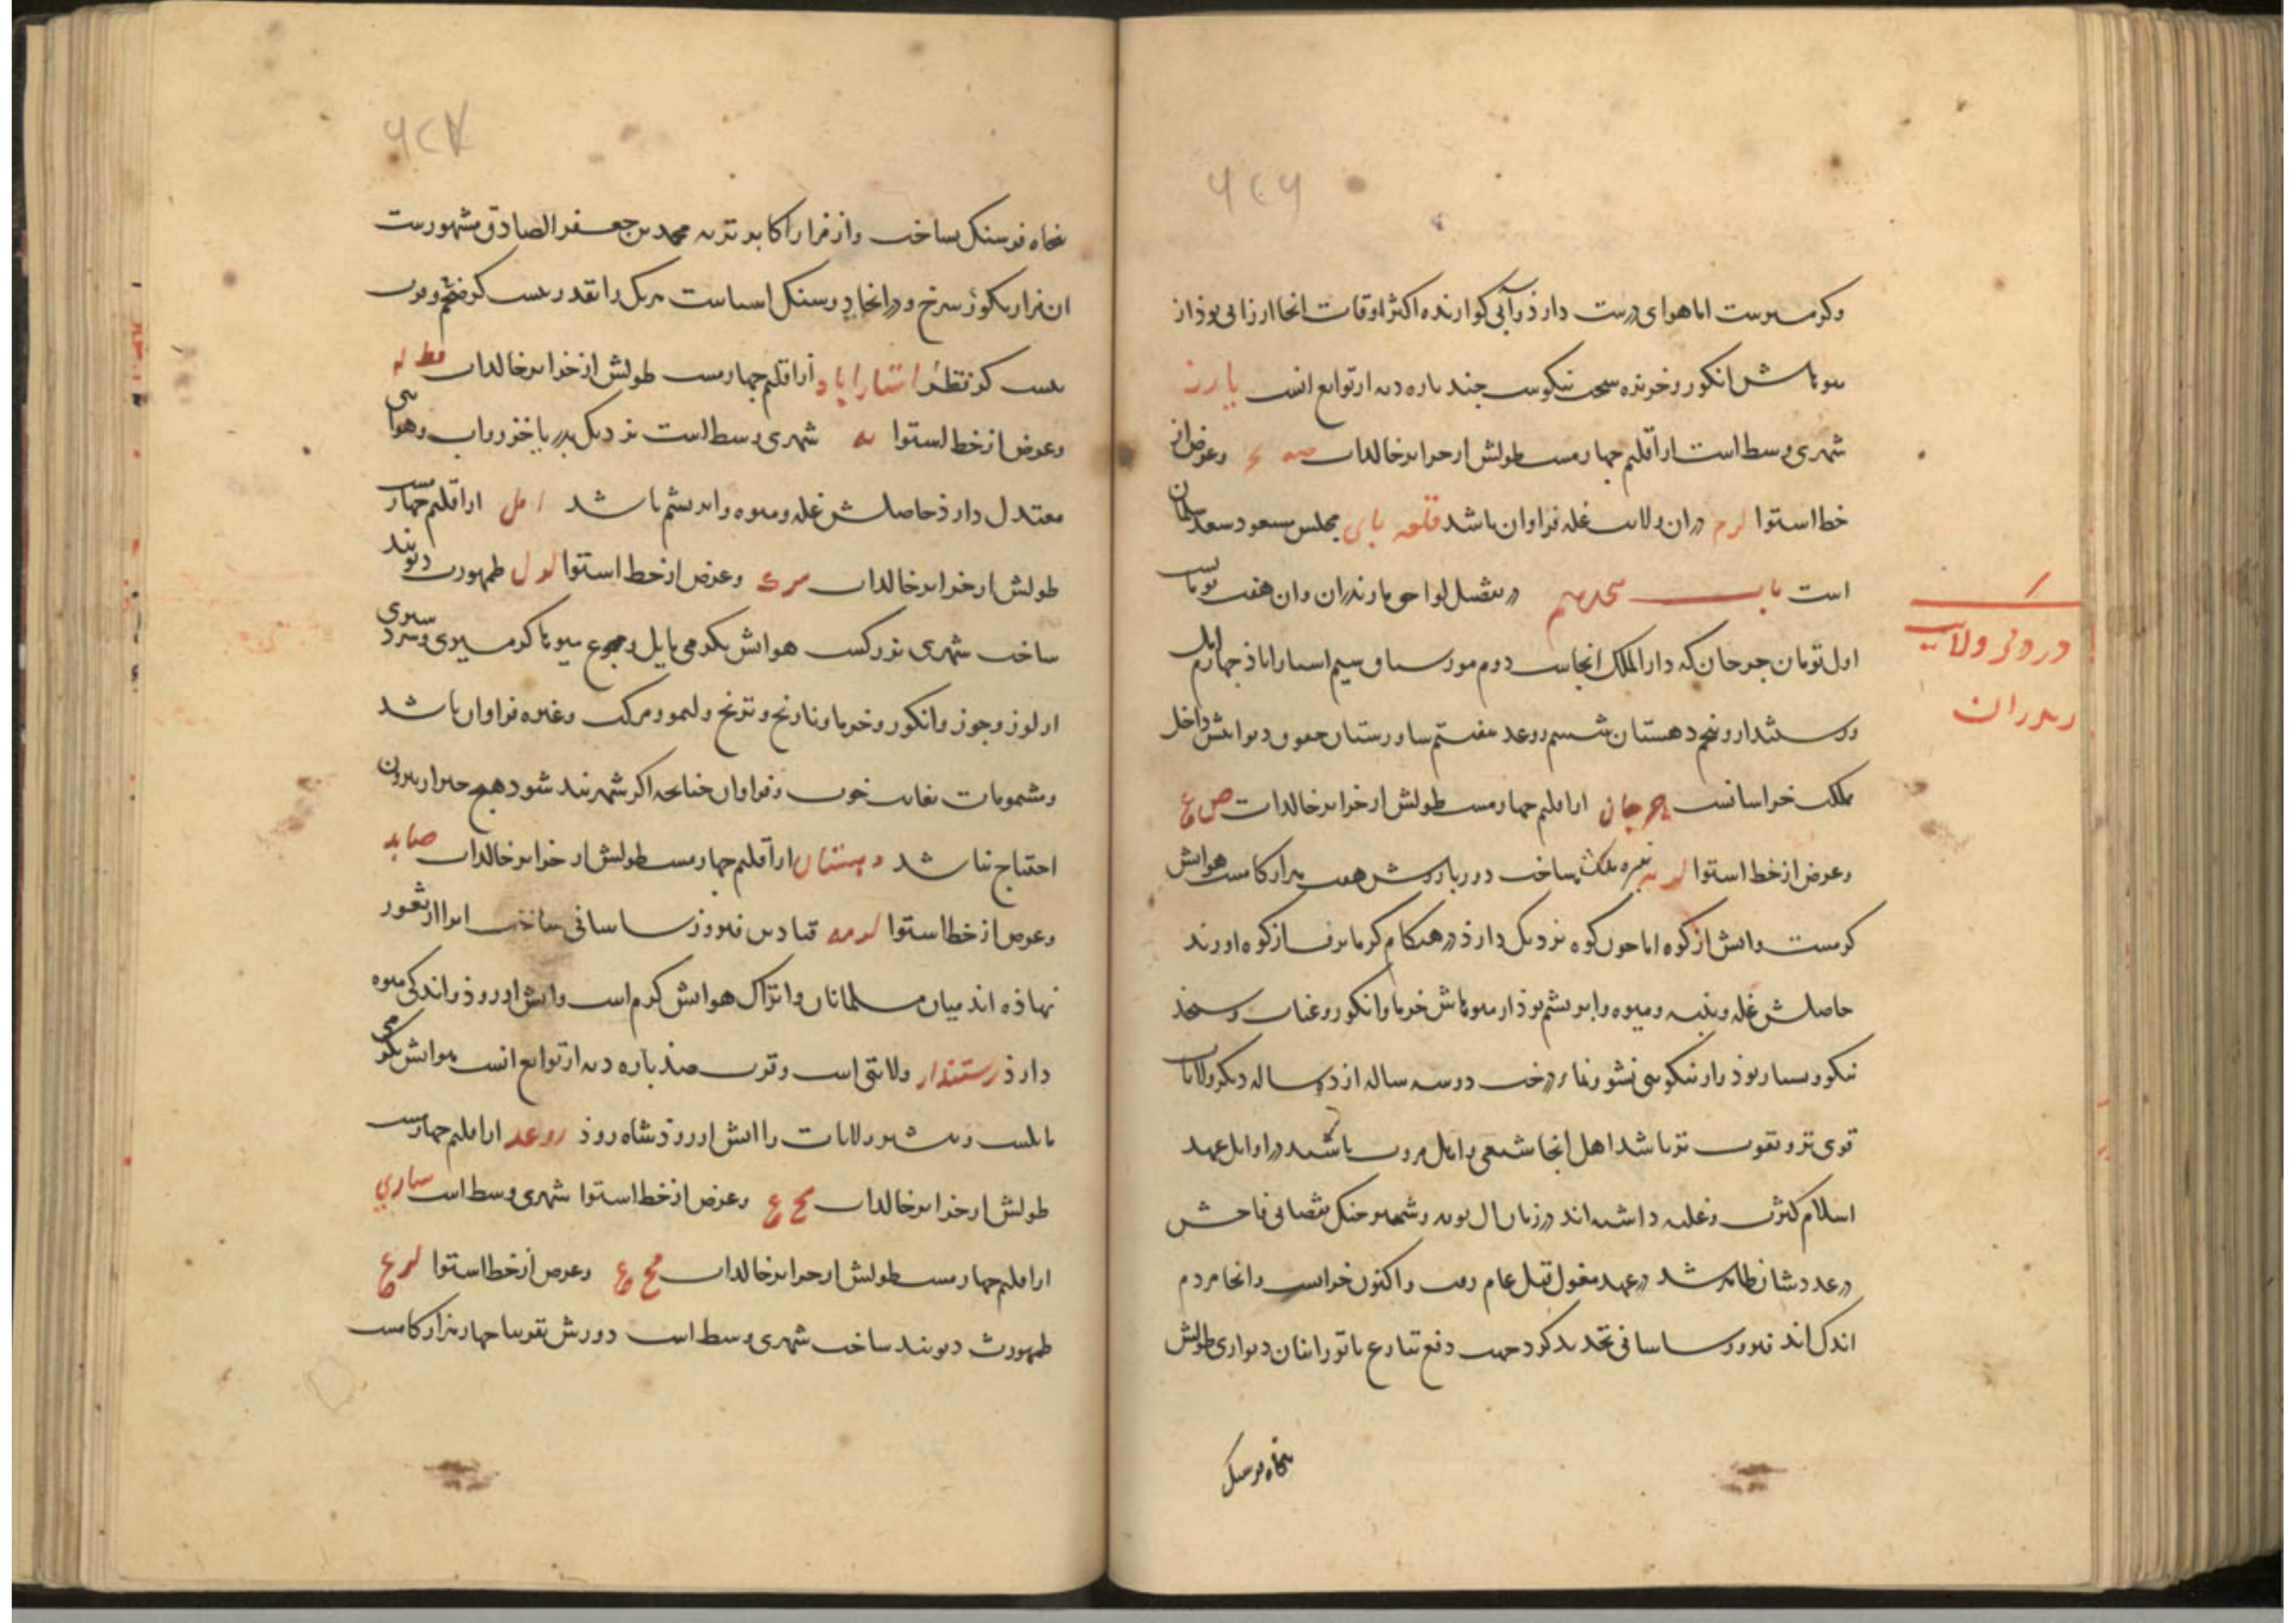 ۶۲۶
وکرمسیرست اما هوای درست دارذ و آبی کوارنده اکثر اوقات انجا ارزانی بوذ از
میوهاش انکور و خربزه سخت نیکوست جند باره دیه از توابع انست یارز
شهری وسط است از اقلیم چهارمست طولش از جزایر خالدات وعرض از
خط استوا دران ولایت غله فراوان باشد قلعه نای مجلس مسعود سعد سلمان
است باب هجدهم در متصل لواحی مازندران وان هفت تومانست
اول تومان جرجان که دار الملک انجاست دوم سیم استراباذ جهارم امل
ورستمدار و پنجم دهستان ششم روعد هفتم داخل
ملک خراسانست جرجان از اقلیم جهارمست طولش از جزایر خالدات ص ع
وعرض از خط استوا نبیره ملک ساخت دور باروش هفت هزار کامست هوایش
کرمست وابش از کوه اما چون کوه نزدیک دارذ در هنکام کرما برف از کوه اورند
حاصلش غله و پنبه و میوه و ابریشم بوذ از میوهاش خرما و انکور و عناب و سنجد
نیکو و بسیار بوذ و از نیکویی نشو و نما درخت دو سه ساله از ده ساله دیکر ولایات
قوی تر و بقوت تر باشد اهل انجا شیعی و اهل مروت باشند در اوایل عهد
اسلام کثرت و غلبه داشته اند در زمان ال بویه وشمکیر جنک نقصانی فاحش
در عددشان ظاهر شد در عهد مغول قتل عام رفت و اکنون خرابست و انجا مردم
اندک اند فیروز ساسانی تجدید کرد جهت دفع تنازع با تورانیان دیواری طولش
پنجاه فرسنک
در ذکر ولایت
۶۲۷
پنجاه فرسنک بساخت و از مزار اکابر تربه محمد بن جعفر الصادق مشهورست
ان مزار بکور سرخ و در انجا دو سنک اسیاست هریک را بقدر بیست کز
بیست کز قطر استراباد از اقلیم جهارمست طولش از جزایر خالدات مط له
وعرض از خط استوا شهری وسط است نزدیک بدریا خزر و اب وهوای
معتدل دارذ حاصلش غله و میوه و ابریشم باشد امل از اقلیم جهارمست
طولش از جزایر خالدات وعرض از خط استوا لو ل طهمورث دیوبند
ساخت شهری بزرکست هوایش بکرمی مایل ومجموع میوها کرمسیری وسردسیری
از لوز و جوز و انکور و خرما و نارنج و ترنج و لیمو و مرکب وغیره فراوان باشد
ومشمومات بغایت خوب و فراوان چنانچه اکر شهربند شود هیچ چیز از بیرون
احتیاج نباشد دهستان از اقلیم جهارمست طولش از جزایر خالدات
وعرض از خط استوا قباد بن فیروز ساسانی ساخت انرا از ثغور
نهاذه اند میان مسلمانان و اتراک هوایش کرم است وابش از روذ و اندکی میوه
دارذ رستمدار ولایتی است و قرب صذ باره دیه از توابع انست هوایش بکرمی
مایلست وبیشتر ولایات را ابش از روذ شاه روذ روعد از اقلیم جهارمست
طولش از جزایر خالدات مح ع وعرض از خط استوا شهری وسط است ساری
از اقلیم جهارمست طولش از جزایر خالدات مح ع وعرض از خط استوا لو ع
طهمورث دیوبند ساخت شهری وسط است دورش تقریبا جهار هزار کامست